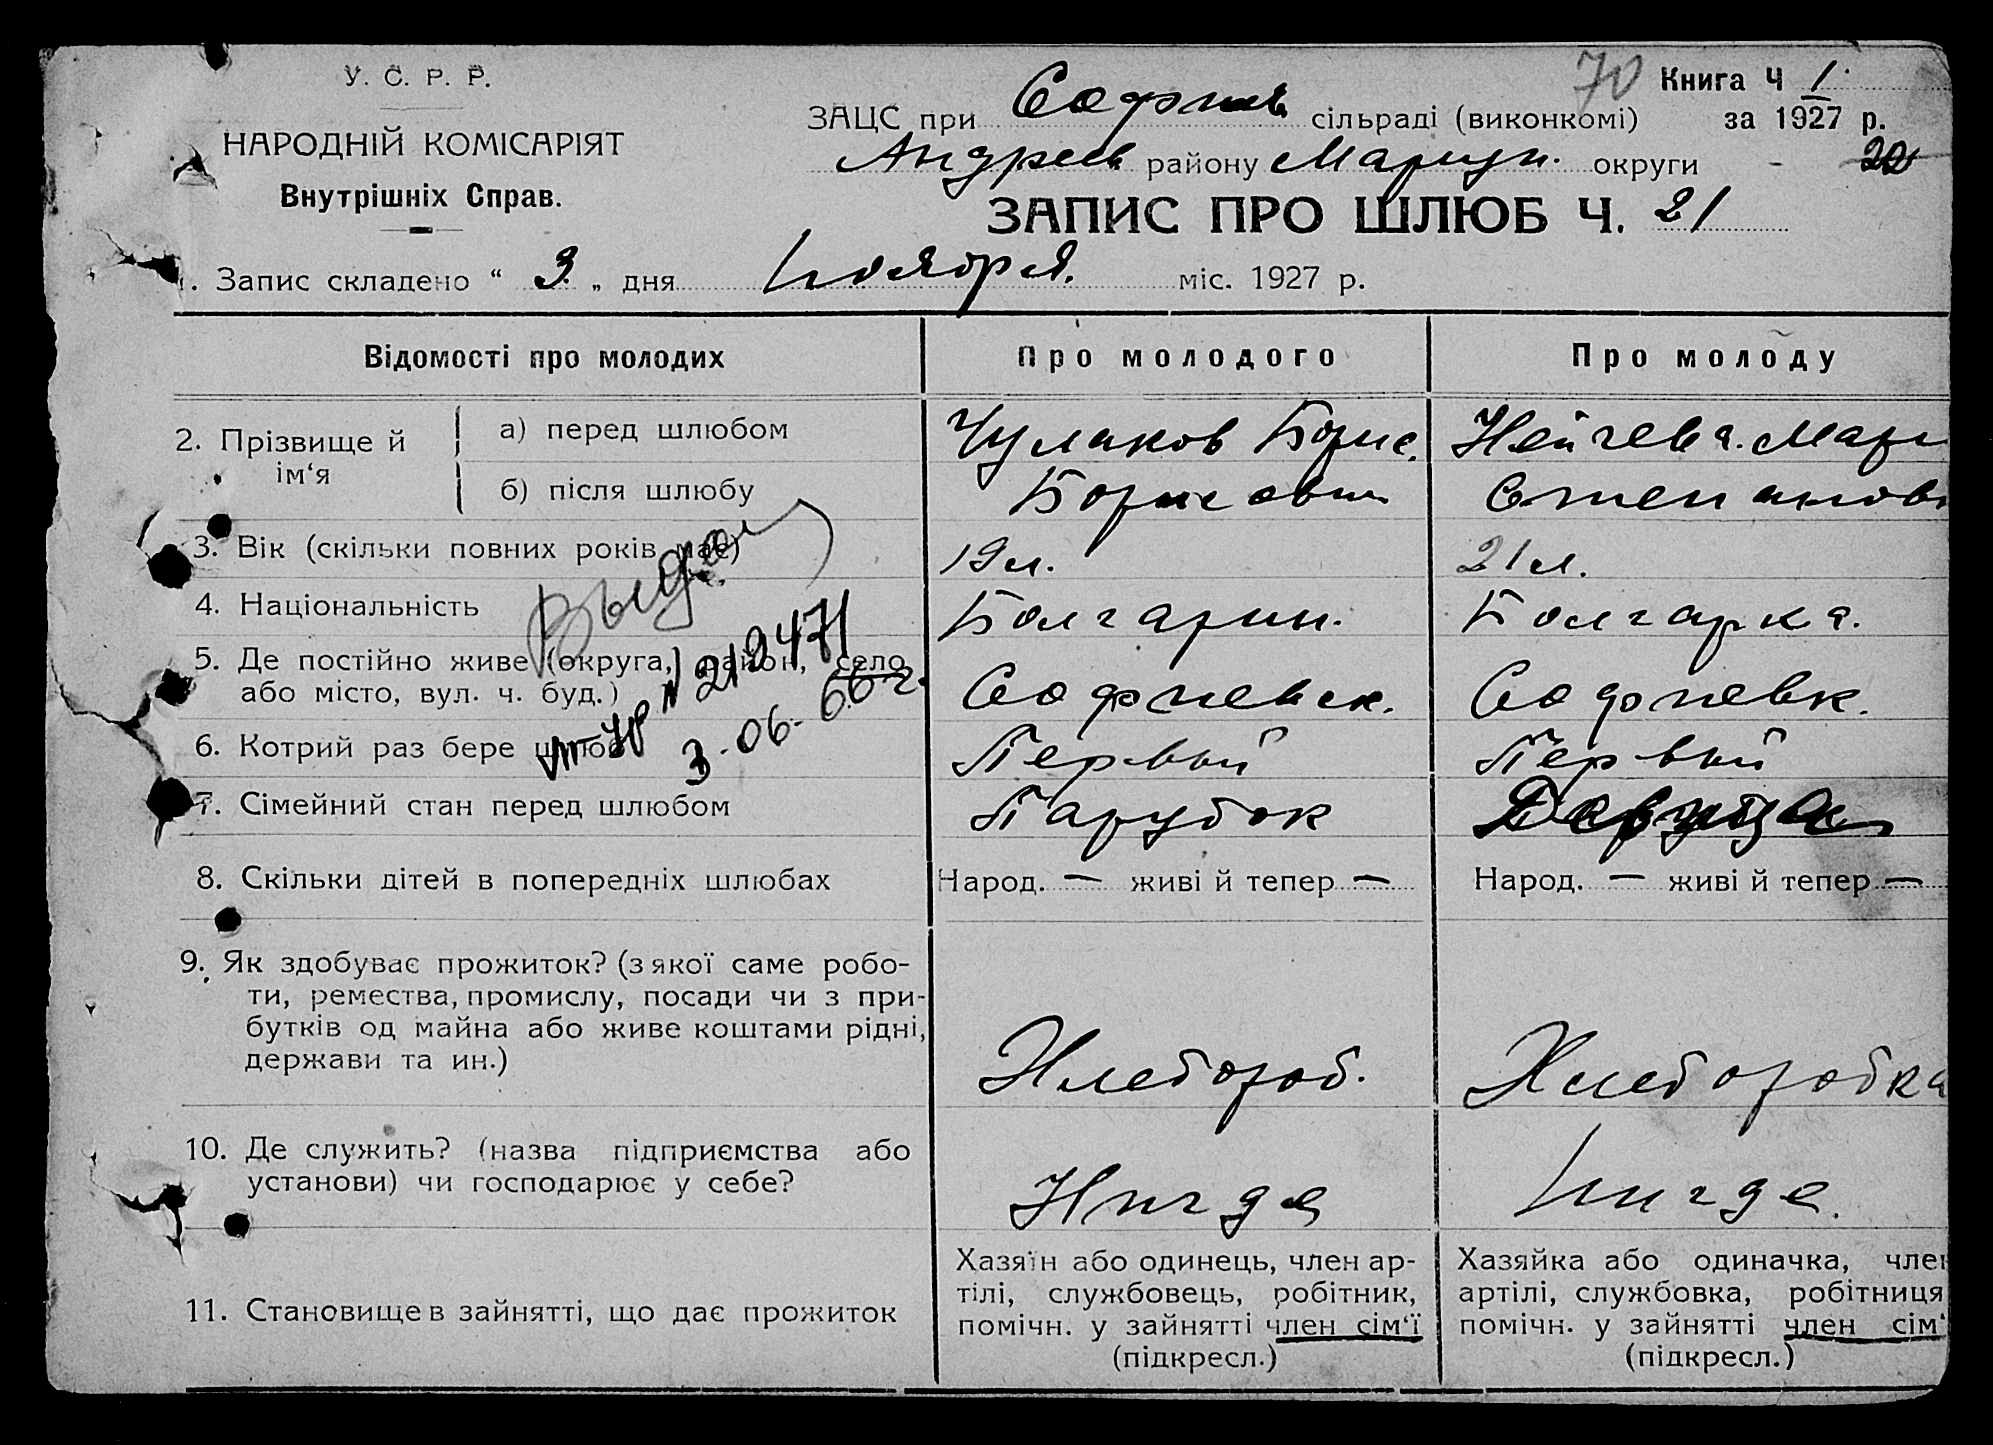 У. С. Р. Р.
НАРОДНІЙ КОМІСАРІЯТ
Внутрішніх Справ.
70 Книга Ч 1
ЗАЦС при Софиев сільраді (виконкомі) за 1927 р.
Андреев району Мариуп. округи - 20
ЗАПИС ПРО ШЛЮБ Ч. 21
1. Запис складено “ 3 „ дня Ноября. міс. 1927 р.
Відомості про молодих Про молодого Про молоду
2. Прізвище й ім‘я
а) перед шлюбом Чулаков Борис. Нейчева. Мари
б) після шлюбу Борисович Степановн
3. Вік (скільки повних років має) 19 л. 21 л.
4. Національність Болгарин. Болгарка.
5. Де постійно живе (округа, район, село
або місто, вул. ч. буд.) Софиевск. Софиевк.
6. Котрий раз бере шлюб Первый Первый
7. Сімейний стан перед шлюбом Парубок Девица
Выдан
№ 212471
3-06-66 г.
8. Скільки дітей в попередніх шлюбах Народ. — живі й тепер — Народ. — живі й тепер —
9. Як здобуває прожиток? (з якої саме робо-
ти, ремества, промислу, посади чи з при-
бутків од майна або живе коштами рідні,
держави та ин.) Хлебороб. Хлеборобка
10. Де служить? (назва підприємства або
установи) чи господарює у себе? Нигде Нигде.
11. Становище в зайнятті, що дає прожиток
Хазяїн або одинець, член ар-
тілі, службовець, робітник,
помічн. у зайнятті член сім‘ї
(підкресл.)
Хазяйка або одиначка, член
артілі, службовка, робітниця
помічн. у зайнятті член сім‘
(підкресл.)